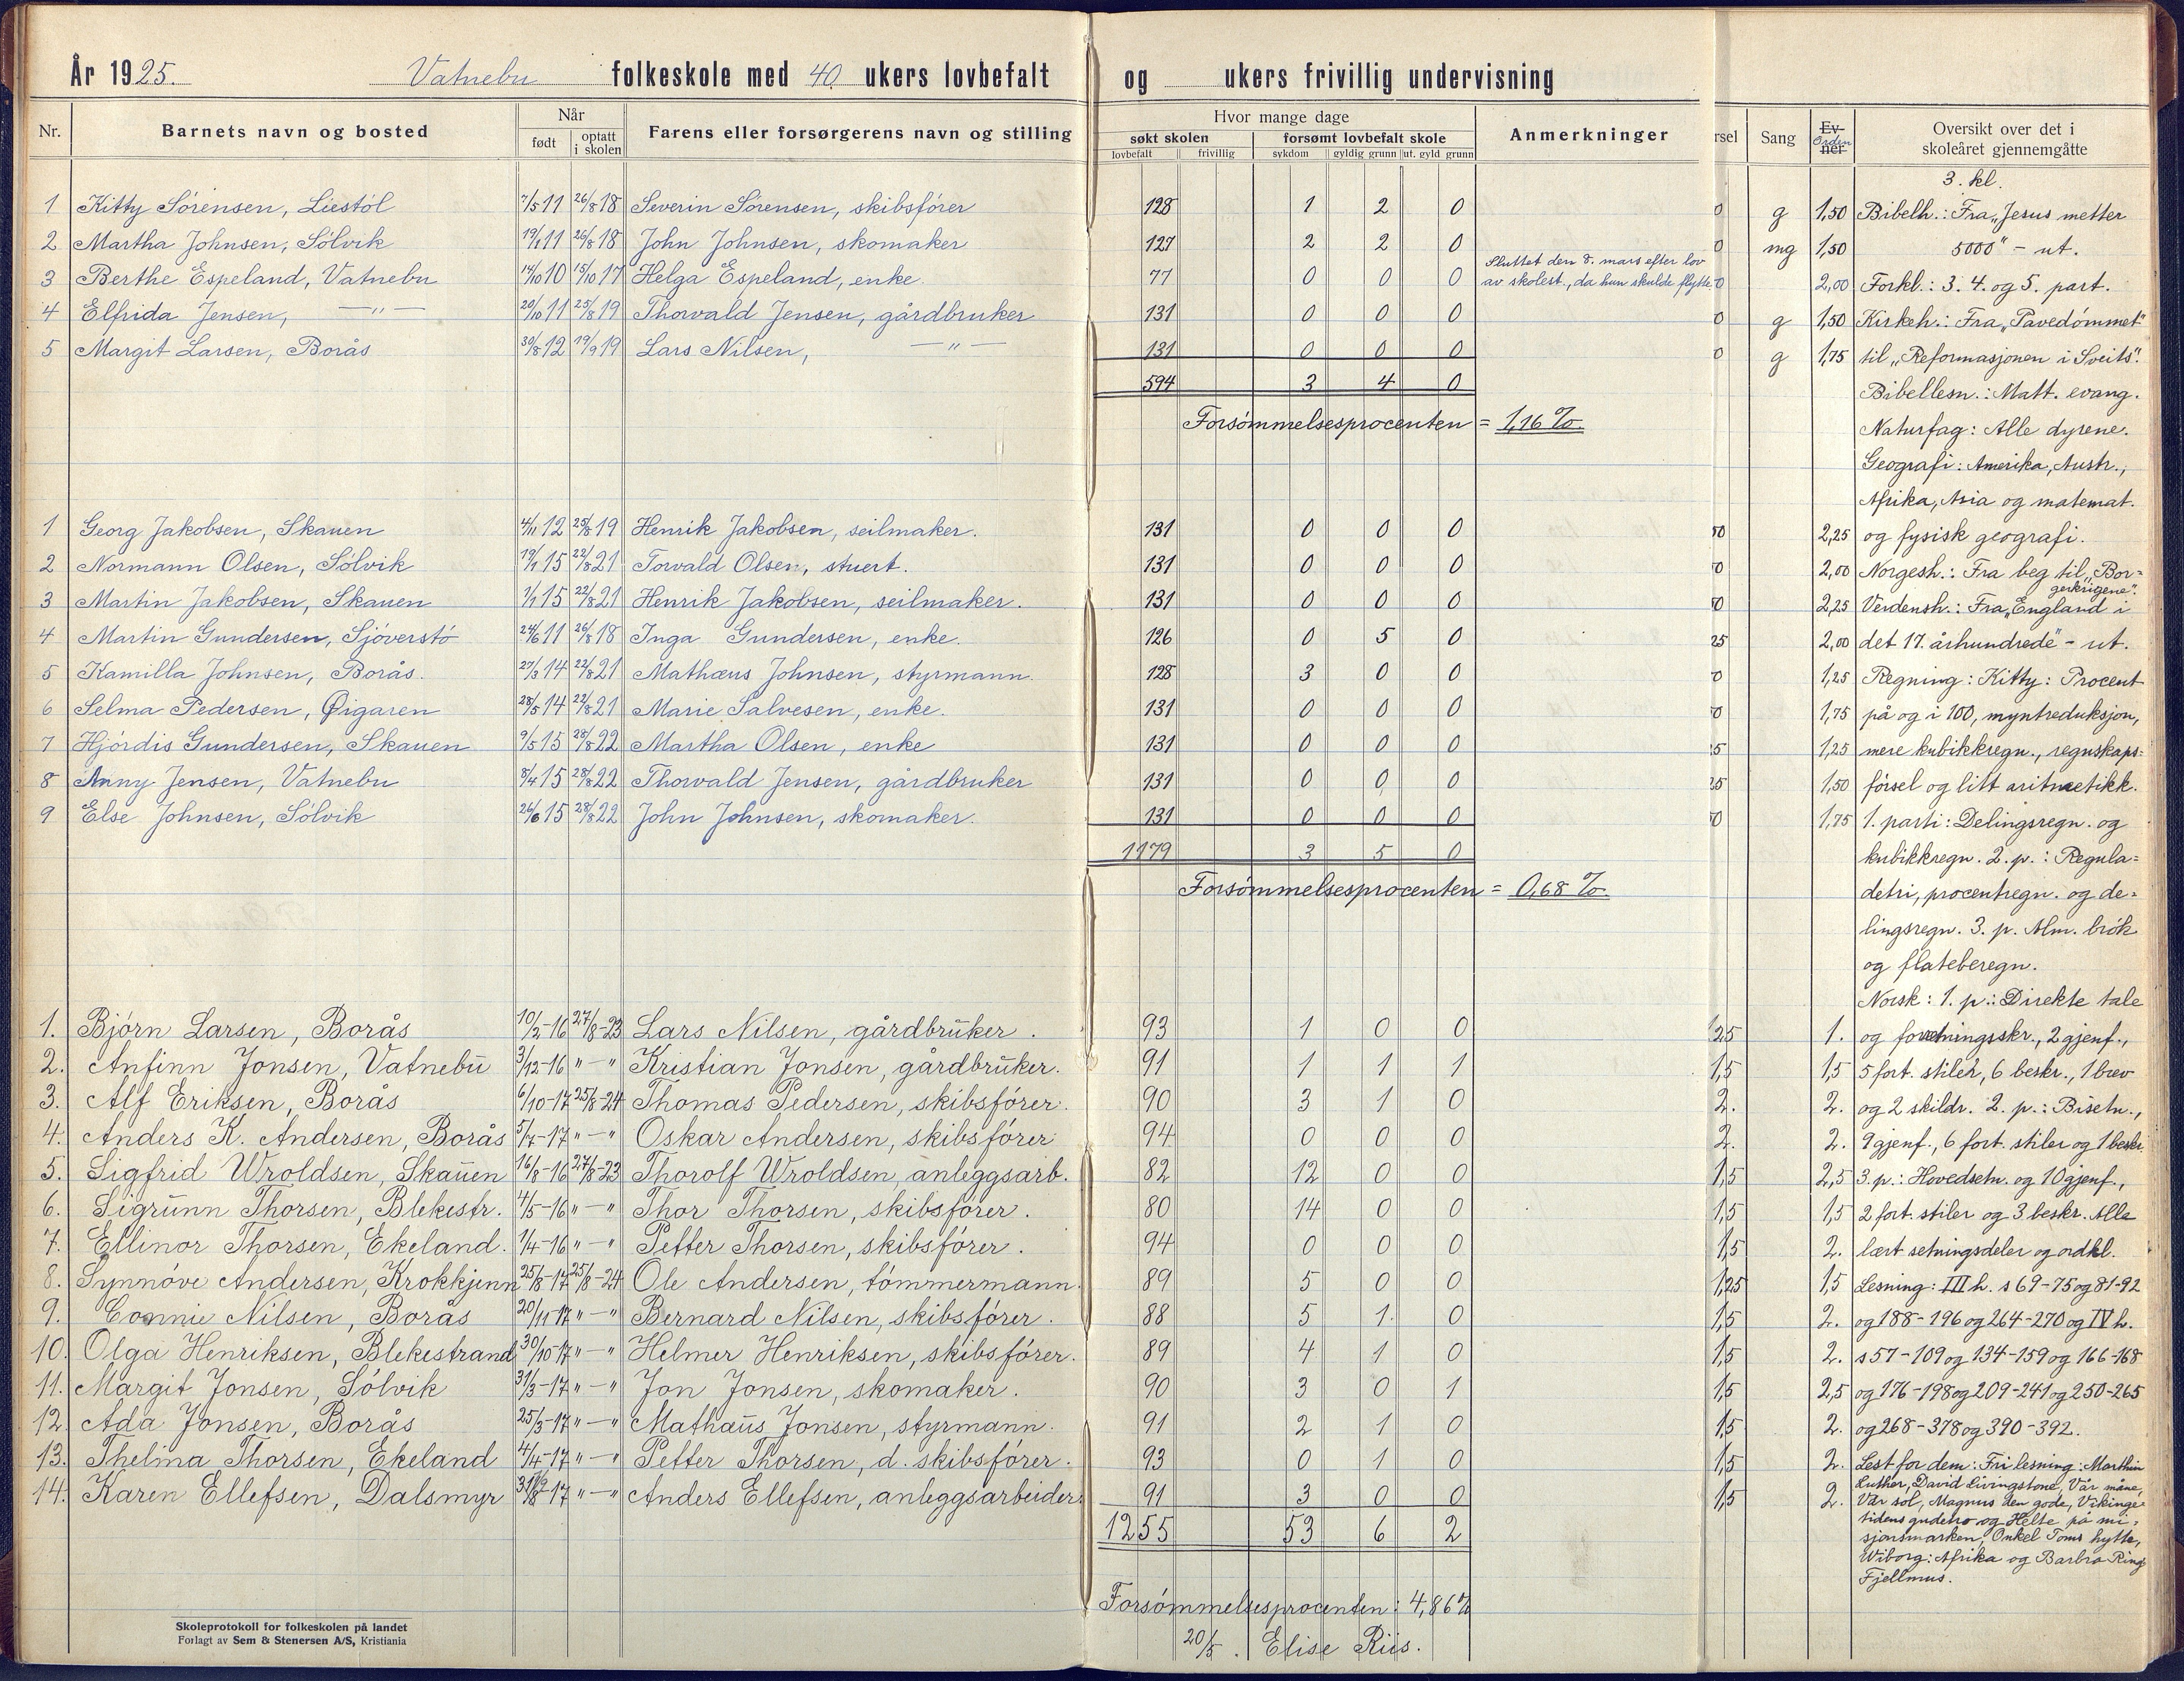 År 1925. Vatnebu folkeskole med 40 ukers lovbefalt og ukers frivillig undervisning
Nr. Barnets navn og bosted Når født optatt i skolen Farens eller forsørgerens navn og stilling
Hvor mange dage
søkt skolen forsømt lovbefalt skole Anmerkninger
lovbefalt frivillig sykdom gyldig grunn ut. gyld grunn
rsel Sang Ev-ner Orden Oversikt over det i skoleåret gjennemgåtte
3. kl.
1 Kitty Sörensen, Liestöl 7/5 11 26/8 18 Severin Sörensen, skibsförer 128 1 2 0 0 g 1,50 Bibelh.: Fra „Jesus metter
2 Martha Johnsen, Sölvik 19/1 11 26/8 18 John Johnsen, skomaker 127 2 2 0 0 mg 1,50 5000" - ut.
Sluttet den 8. mars efter lov
3 Berthe Espeland, Vatnebu 14/10 10 15/10 17 Helga Espeland, enke. 77 0 0 0 av skolest., da hun skulde flytte. 0 2,00 Forkl.: 3. 4. og 5. part.
4 Elfrida Jensen, — " — 20/10 11 25/8 19 Thorvald Jensen, gårdbruker 131 0 0 0 0 g 1,50 Kirkeh.: Fra „Pavedömmet"
5 Margit Larsen, Borås 30/8 12 19/9 19 Lars Nilsen, — " — 131 0 0 0 0 g 1,75 til „Reformasjonen i Sveits".
594 3 4 0 Bibellesn.: Matt. evang.
Forsömmelsesprocenten = 1,16 % Naturfag: Alle dyrene.
Geografi: Amerika, Austr.,
Afrika, Asia og matemat.
1 Georg Jakobsen, Skauen 4/11 12 25/8 19 Henrik Jakobsen, seilmaker. 131 0 0 0 50 2,25 og fysisk geografi.
2 Normann Olsen, Sölvik 19/1 15 22/8 21 Torvald Olsen, stuert. 131 0 0 0 0 2,00 Norgesh.: Fra beg til „Bor=
gerkrigene".
3 Martin Jakobsen, Skauen 1/1 15 22/8 21 Henrik Jakobsen, seilmaker. 131 0 0 0 0 2,25 Verdensh.: Fra „England i
4 Martin Gundersen, Sjöverstö 24/6 11 26/8 18 Inga Gundersen, enke. 126 0 5 0 25 2,00 det 17. århundrede" - ut.
5 Kamilla Johnsen, Borås. 27/3 14 22/8 21 Mathæus Johnsen, styrmann. 128 3 0 0 0 1,25 Regning: Kitty: Procent
6 Selma Pedersen, Øigaren 28/5 14 22/8 21 Marie Salvesen, enke. 131 0 0 0 0 1,75 på og i 100, myntreduksjon,
7 Hjördis Gundersen, Skauen 9/5 15 28/8 22 Martha Olsen, enke 131 0 0 0 5 1,25 mere kubikkregn., regnskaps=
8 Anny Jensen, Vatnebu 8/4 15 28/8 22 Thorvald Jensen, gårdbruker 131 0 0 0 25 1,50 försel og litt aritmetikk.
9 Else Johnsen, Sölvik 26/6 15 28/8 22 John Johnsen, skomaker. 131 0 0 0 0 1,75 1. parti: Delingsregn. og
1179 3 5 0 kubikkregn. 2. p.: Regula=
Forsömmelsesprocenten = 0,68 % detri, procentregn. og de=
lingsregn. 3. p. Alm. brök
og flateberegn.
Norsk: 1. p.: Direkte tale
1. Björn Larsen, Borås 10/2-16 27/8-23 Lars Nilsen, gårdbrūker. 93 1 0 0 1,25 1. og forretningsskr., 2 gjenf.,
2. Anfinn Jonsen, Vatnebū 3/12-16 " — " Kristian Jonsen, gårdbrūker. 91 1 1 1 1,5 1,5 5 fort. stiler, 6 beskr., 1 brev
3. Alf Eriksen, Borås 6/10-17 25/8-24 Thomas Pedersen, skibsförer. 90 3 1 0 2. 2. og 2 skildr. 2. p.: Bisetn.,
4. Anders K. Andersen, Borås 5/7-17 " — " Oskar Andersen, skibsförer 94 0 0 0 2. 2. 9 gjenf., 6 fort. stiler og 1 beskr.
5. Sigfrid Wroldsen, Skaūen 16/8-16 27/8-23 Thorolf Wroldsen, anleggsarb. 82 12 0 0 1,5 2,5 3. p.: Hovedsetn. og 10 gjenf.,
6. Sigrūnn Thorsen, Blekestr. 4/5-16 " — " Thor Thorsen, skibsförer. 80 14 0 0 1,5 1,5 2 fort. stiler og 3 beskr. Alle
7. Ellinor Thorsen, Ekeland. 1/4-16 " — " Petter Thorsen, skibsförer. 94 0 0 0 1,5 2. lært setningsdeler og ordkl.
8. Synnöve Andersen, Krokkjenn 25/8-17 25/8-24 Ole Andersen, tömmermann. 89 5 0 0 1,25 1,5 Lesning: III h. s 69-75 og 81-92
9. Connie Nilsen, Borås 20/11-17 " — " Bernard Nilsen, skibsförer. 88 5 1. 0 1,5 2. og 188-196 og 264-270 og IV h.
10. Olga Henriksen, Blekestrand 30/10-17 " — " Helmer Henriksen, skibsförer. 89 4 1 0 1,5 2. s 57-109 og 134-159 og 166-168
11. Margit Jonsen, Sölvik 31/3-17 " — " Jon Jonsen, skomaker. 90 3 0 1 1,5 2,5 og 176-198 og 209-241 og 250-265
12. Ada Jonsen, Borås 25/3-17 " — " Mathaūs Jonsen, styrmann. 91 2 1 0 1,5 2. og 268-378 og 390-392.
13. Thelma Thorsen, Ekeland 4/4-17 " — " Petter Thorsen, d. skibsförer. 93 0 1 0 1,5 2. Lest for dem: Fri lesning: Marthin
14. Karen Ellefsen, Dalsmyr 17 " — " Anders Ellefsen, anleggsarbeider. 91 3 0 0 1,5 2. Luther, David Livingstone, Vår måne,
Vår sol, Magnus den gode, Vikinge=
1255 53 6 2 tidens gudetro og Helte på mi=
sjonsmarken, Onkel Toms hytte,
Wiborg: Afrika og Barbra Ring:
Fjellmus.
Forsömmelsesprocenten: 4,86 %
20/5. Elise Riis.
Skoleprotokoll for folkeskolen på landet
Forlagt av Sem & Stenersen A/S, Kristiania